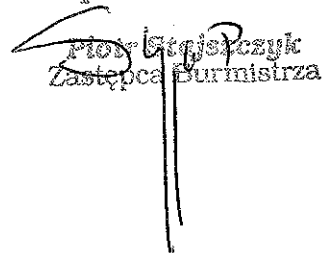 Piotr Stajszczyk
Zastępca Burmistrza